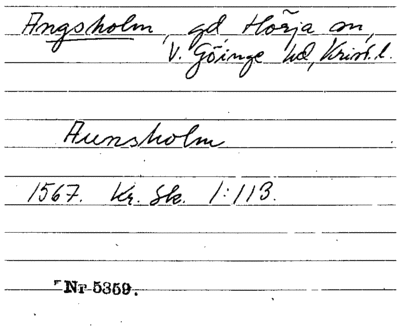 Angsholm, gd, Hörja sn,
V. Göinge hd, Krist. l.
Aunsholm
1567. Kr. Sk. 1:113.
Nr 5359.